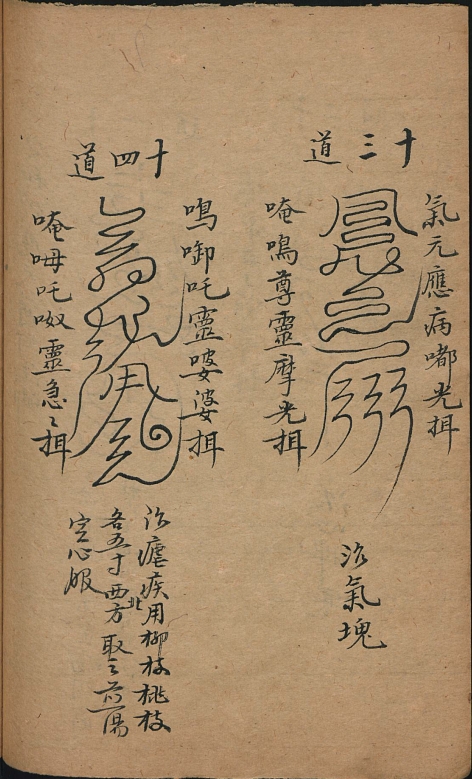 十三道
氣元應病嘟光揖
唵鳴尊靈摩光揖
治氣塊
十四道
鳴啣吒靈婆婆揖
唵呣吒呶靈急〻揖
治瘧疾用柳枝桃枝
各五寸西北方取之煎湯
空心服